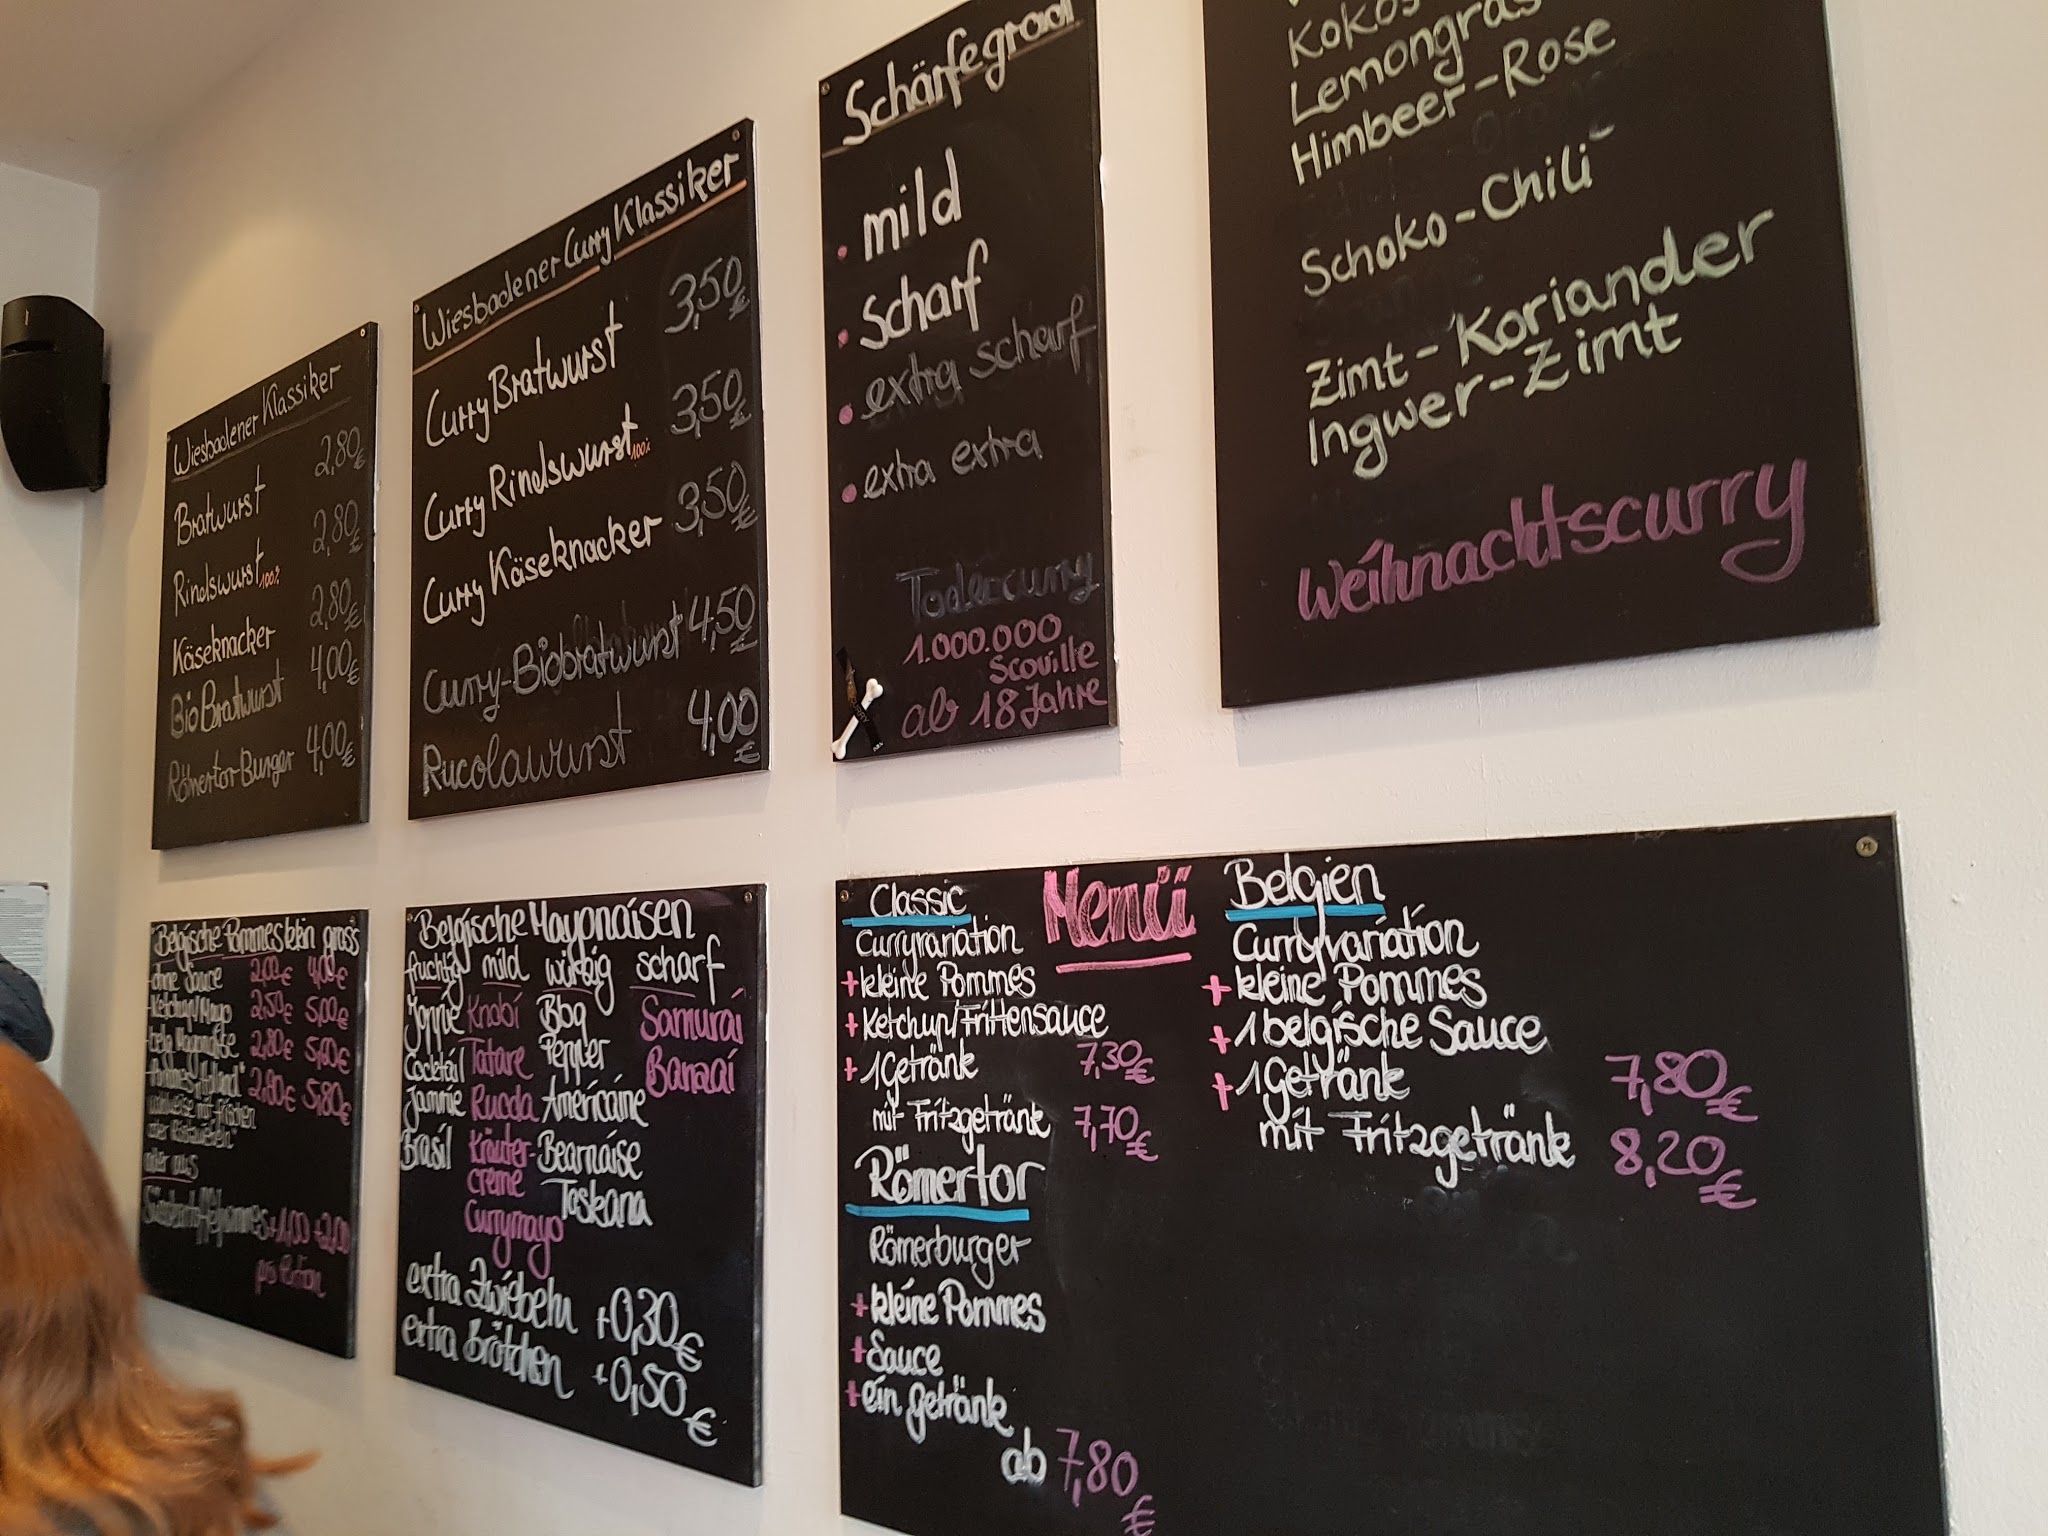 Wiesbadener Klassiker
Bratwurst 2,80€
Rindswurst 100% 2,80€
Käseknacker 2,80€
Bio Bratwurst 4,00€
Römertor-Burger 4,00€
Wiesbadener Curry Klassiker
Curry Bratwurst 3,50€
Curry Rindswurst 100% 3,50€
Curry Käseknacker 3,50€
Curry-Biobratwurst 4,50€
Rucolawurst 4,00€
Schärfegrad
• mild
• Scharf
• extra scharf
• extra extra
Todescurry
1.000.000
Scoville
ab 18 Jahre
Kokos
Lemongras
Himbeer-Rose
Schoko-Chili
Zimt-Koriander
Ingwer-Zimt
Weihnachtscurry
Belgische Pommes klein gross
-ohne Sauce 2,00€ 4,00€
-Ketchup/Mayo 2,50€ 5,00€
-belg Mayonaise 2,80€ 5,60€
-Pommes "Holland" 2,90€ 5,80€
Wahlweise mit frischen
oder Röstzwiebeln"
oder als
Süsskartoffelpommes +1,00 +2,00
pro Portion
Belgische Mayonaisen
fruchtig mild würzig scharf
Joppie Knobi Bbq Samurai
Cocktail Tatare Pepper Banzai
Jammie Rucola Américaine
Brasil Kräuter- Bearnaise
creme Toskana
Currymayo
extra Zwiebeln +0,30€
extra Brötchen +0,50€
Menüü
Classic
Curryvariation
+kleine Pommes
+Ketchup/Frittensauce
+1Getränk 7,30€
mit Fritzgetränk 7,70€
Römertor
Römerburger
+kleine Pommes
+Sauce
+ein Getränk
ab 7,80€
Belgien
Curryvariation
+kleine Pommes
+1 belgische Sauce
+1Getränk 7,80€
mit Fritzgetränk 8,20€